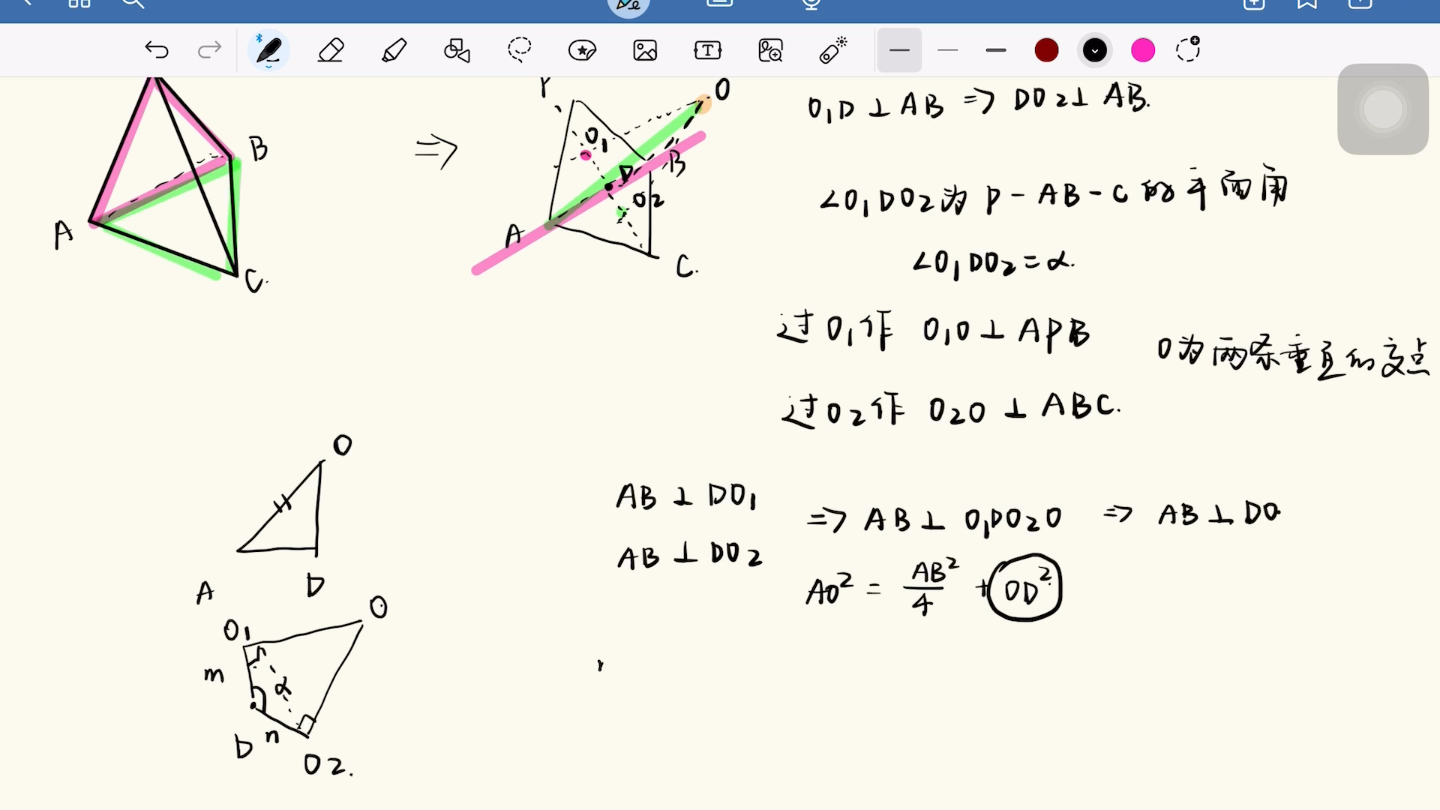 B
A
C.
⇒
P.
O
O₁
D
B
O₂
A
C.
O₁D ⊥ AB ⇒ DO₂ ⊥ AB.
∠O₁DO₂为 P-AB-C 的平面角
∠O₁DO₂=α.
过O₁作 O₁O ⊥ APB
O为两条垂直的交点
过O₂作 O₂O ⊥ ABC.
O
A
D
AB ⊥ DO₁
AB ⊥ DO₂
⇒ AB ⊥ O₁DO₂O ⇒ AB ⊥ DO
AO² = AB²/4 + OD²
O₁
O
m
α
D
n
O2.